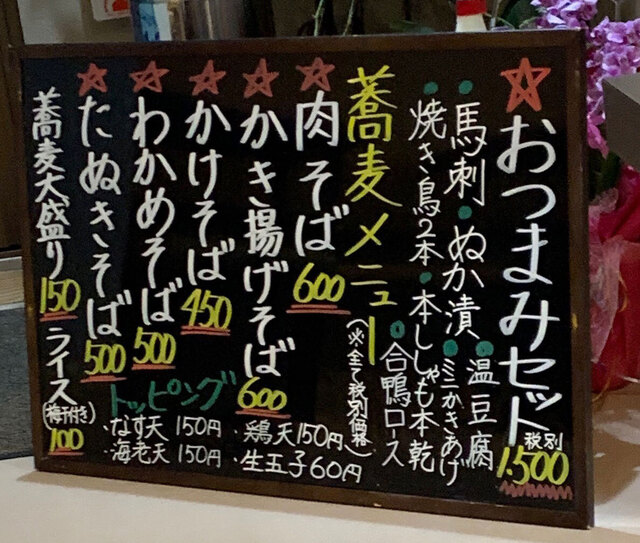 おつまみセット 税別 1.500
・馬刺・ぬか漬・温豆腐
・焼き鳥2本・本ししゃも本乾・ミニかきあげ
・合鴨ロース
蕎麦メニュー(※全て税別価格)
肉そば 600
かき揚げそば 600
かけそば 450
わかめそば 500
たぬきそば 500
蕎麦大盛り 150
ライス(梅干付き) 100
トッピング
・なす天 150円
・海老天 150円
・鶏天 150円
・生玉子 60円